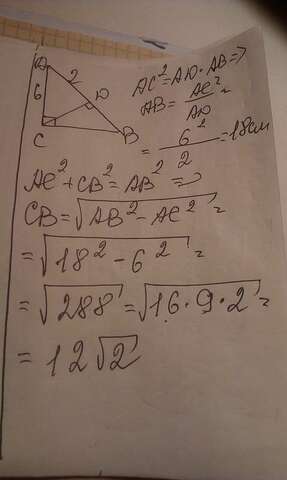 A
2
D
6
C
B
AC² = AD · AB =>
AB = AC²/AD =
= 6²/2 = 18см
AC² + CB² = AB² =>
CB = √(AB² - AC²) =
= √(18² - 6²) =
= √288 = √(16 · 9 · 2) =
= 12√2